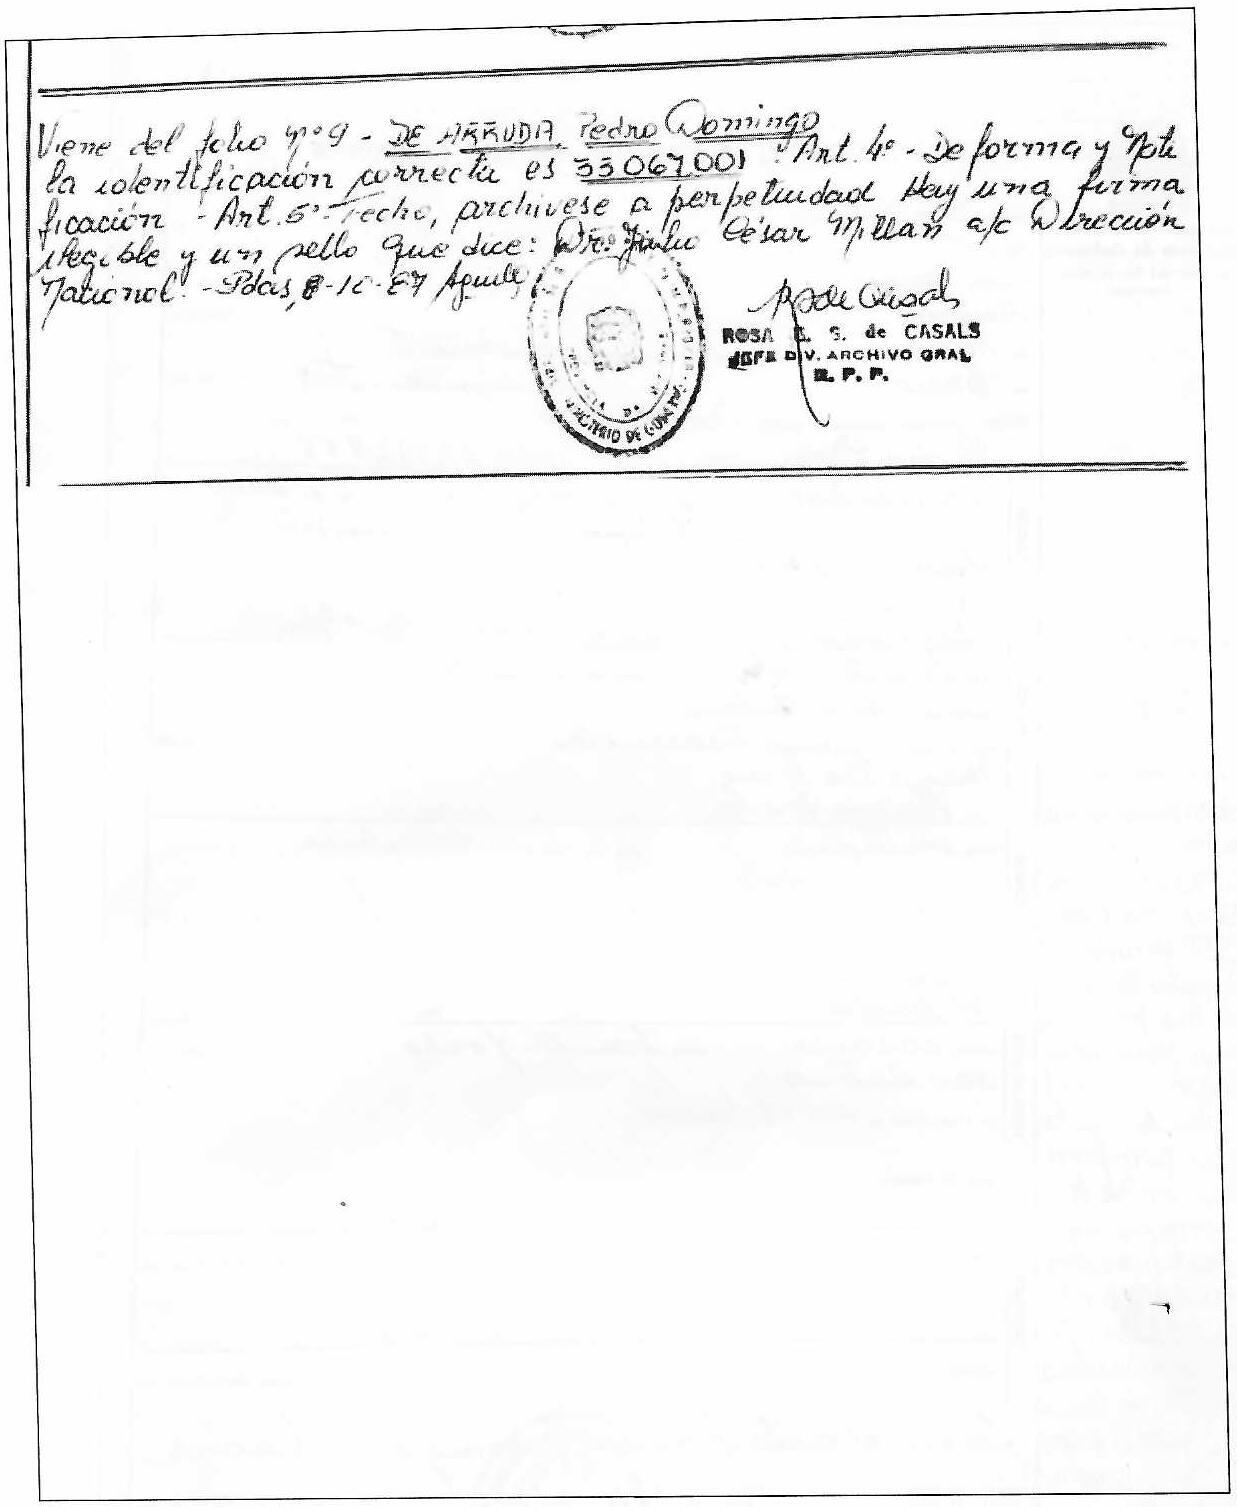 Viene del folio Nº 9 - DE ARRUDA, Pedro Domingo
la identificación correcta es 33067001. Art. 4º - De forma y Noti
ficación - Art. 5º - Fecho, archivese a perpetuidad Hay una firma
ilegible y un sello que dice: Dr. Julio César Millan a/c Dirección
National. - Pdas, 8-10-87
ROSA E. S. de CASALS
JEFE DIV. ARCHIVO GRAL
R. P. P.
MINISTERIO DE GOBIERNO